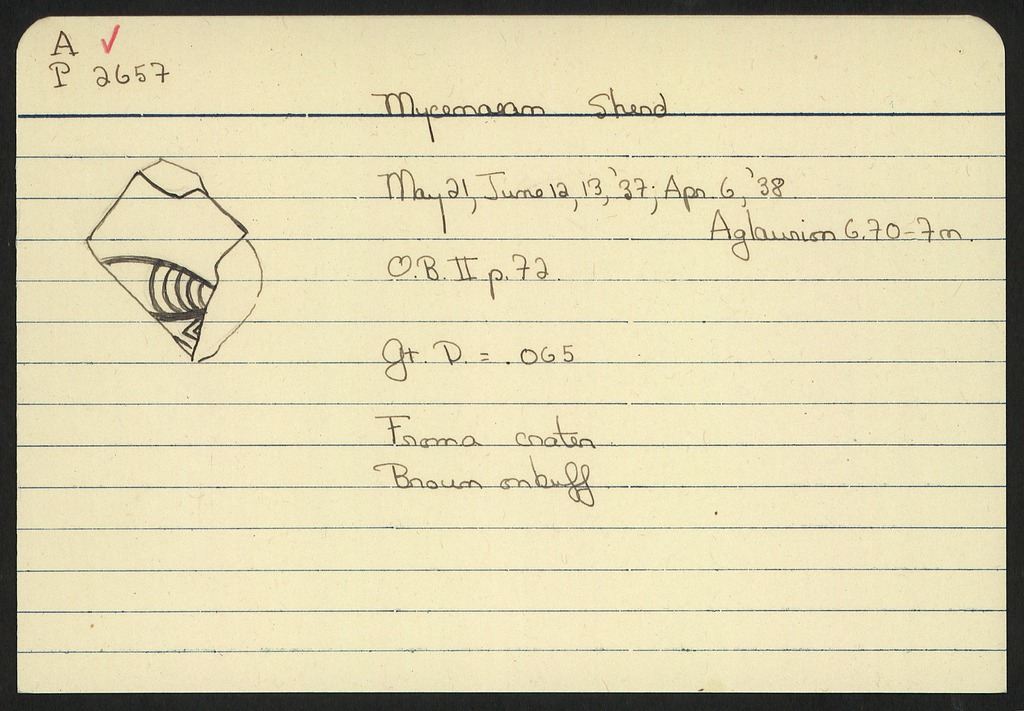 A ✓
P 2657
Mycenaean Sherd
May 21, June 12, 13, '37; Apr. 6, '38
Aglaurion 6.70-7m.
O.B. II p. 72.
Gt. D. = .065
From a crater
Brown on buff